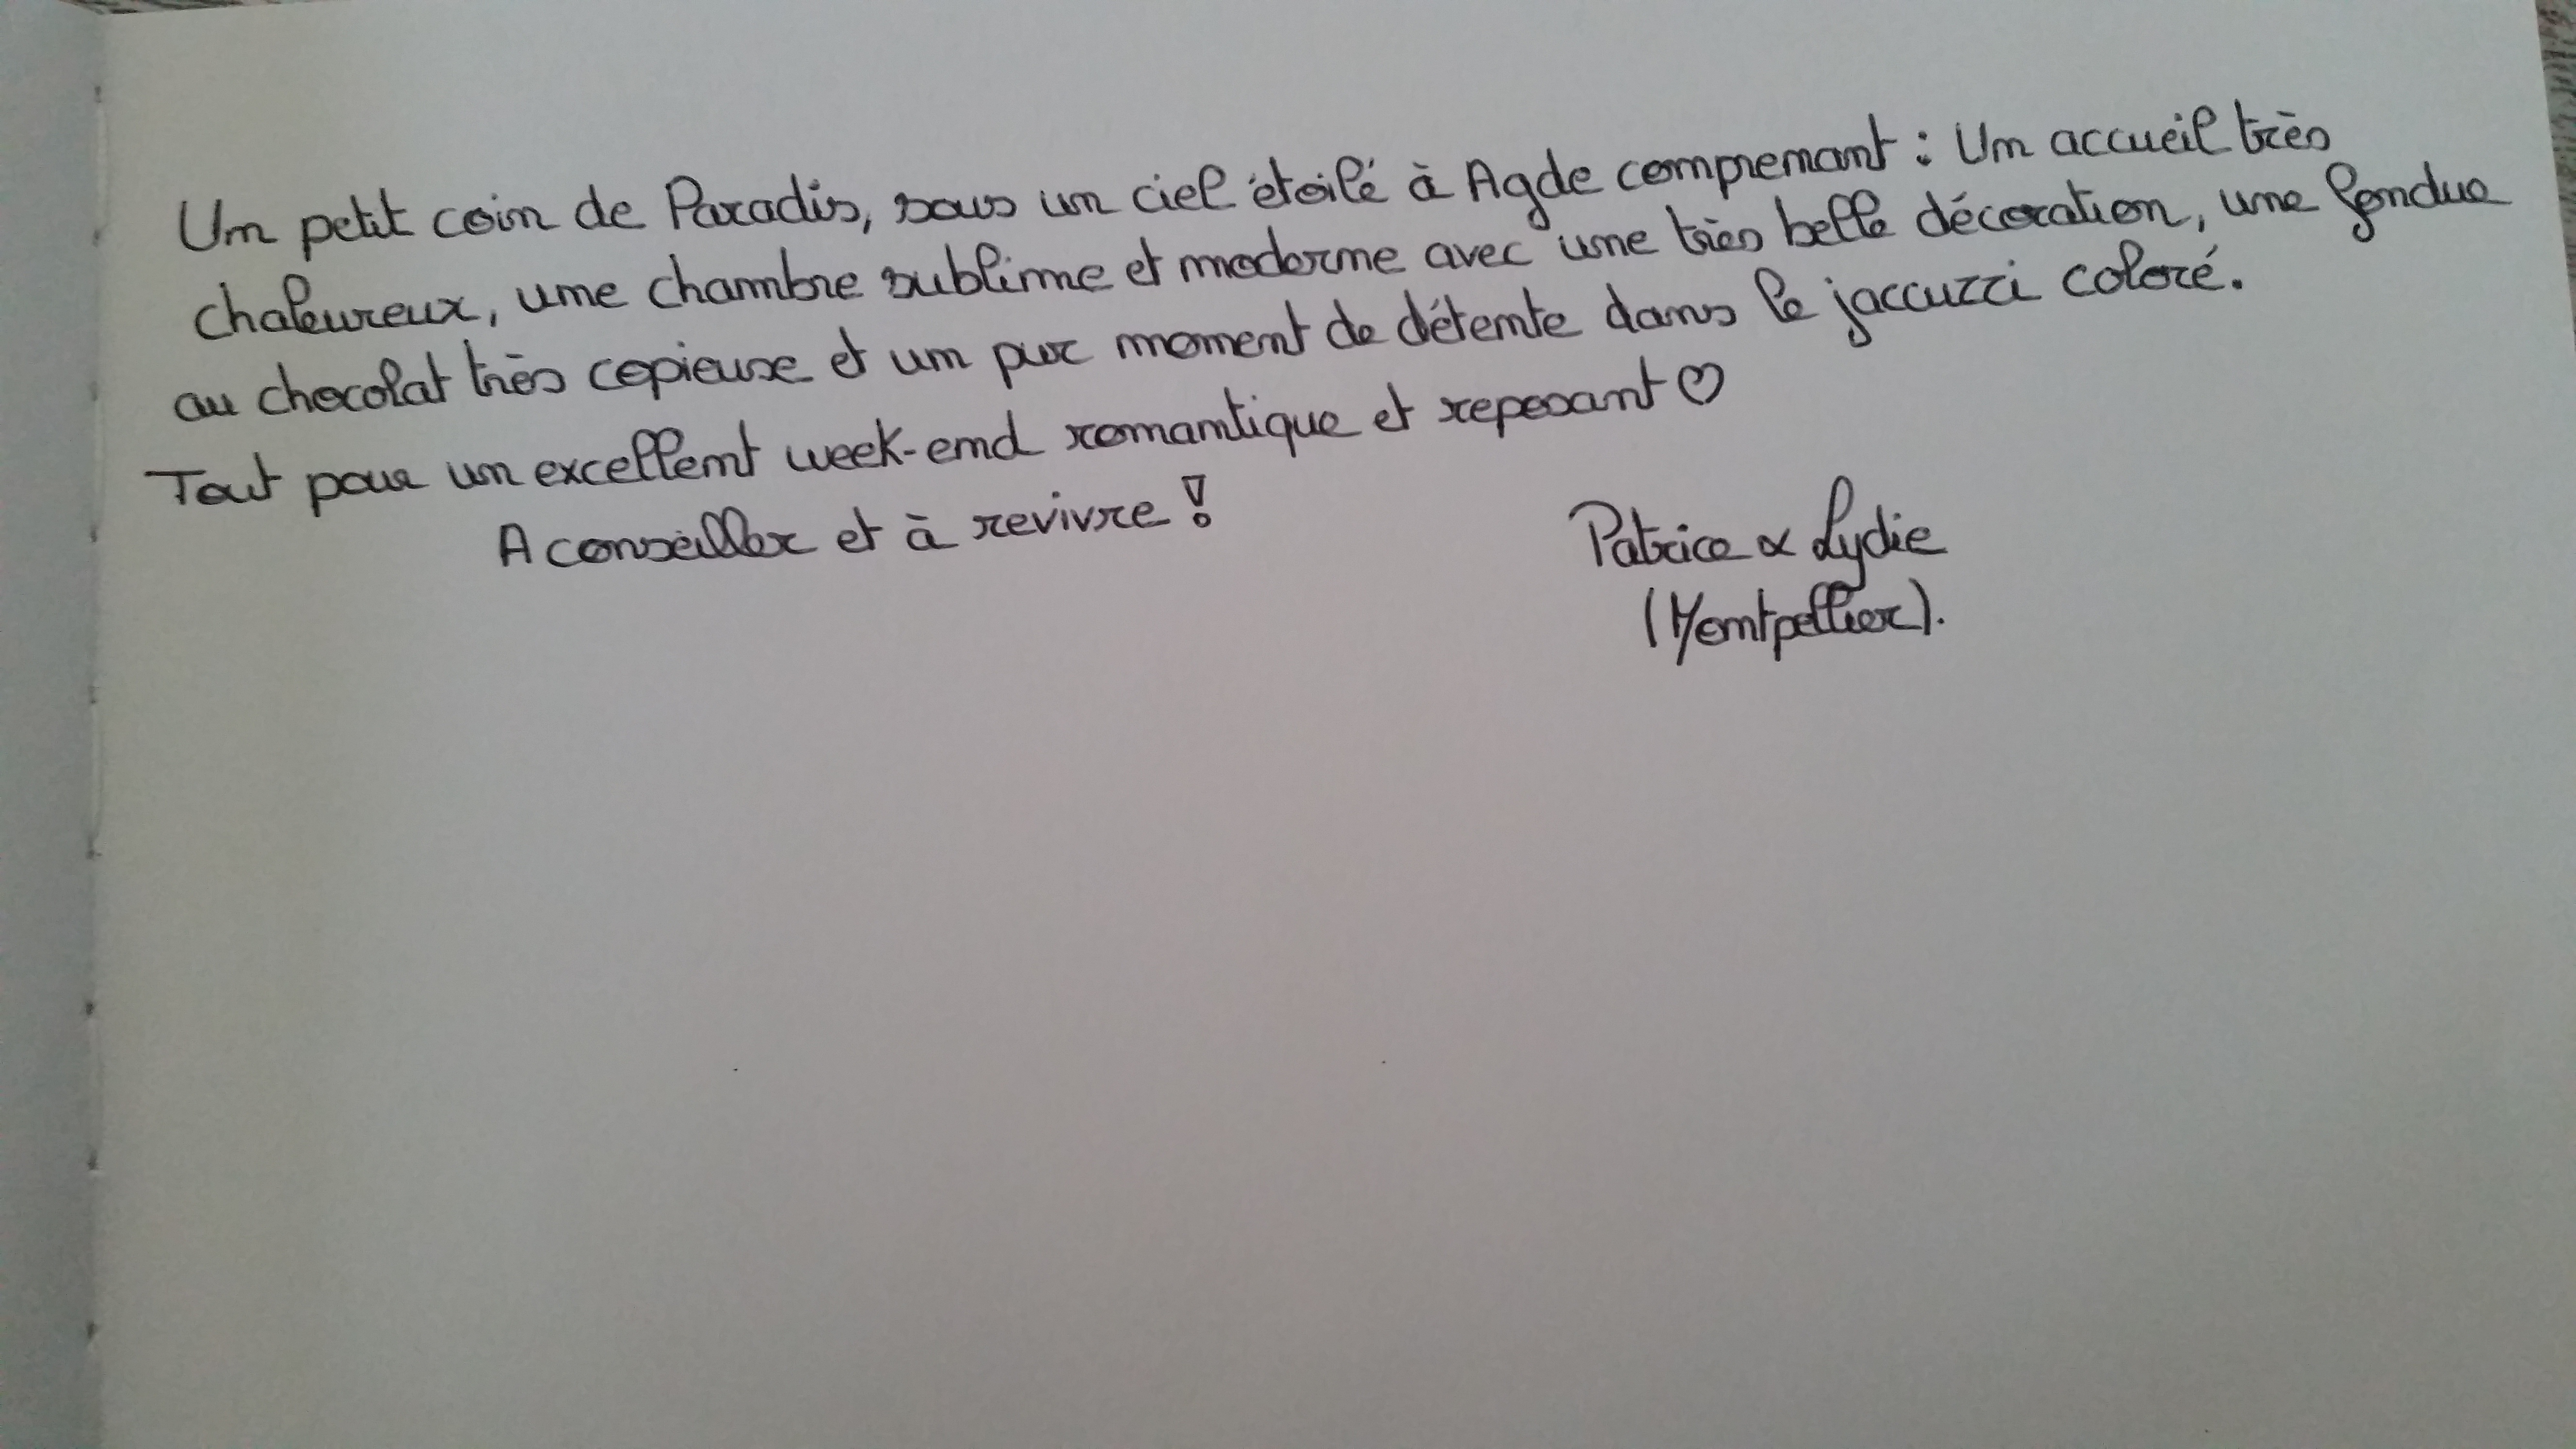 Un petit coin de Paradis, sous un ciel étoilé à Agde comprenant : Un accueil très
chaleureux, une chambre sublime et moderne avec une très belle décoration, une fondue
au chocolat très copieuse et un pur moment de détente dans le jaccuzzi coloré.
Tout pour un excellent week-end romantique et reposant ♡
A conseiller et à revivre !
Patrice & Lydie
(Montpellier).